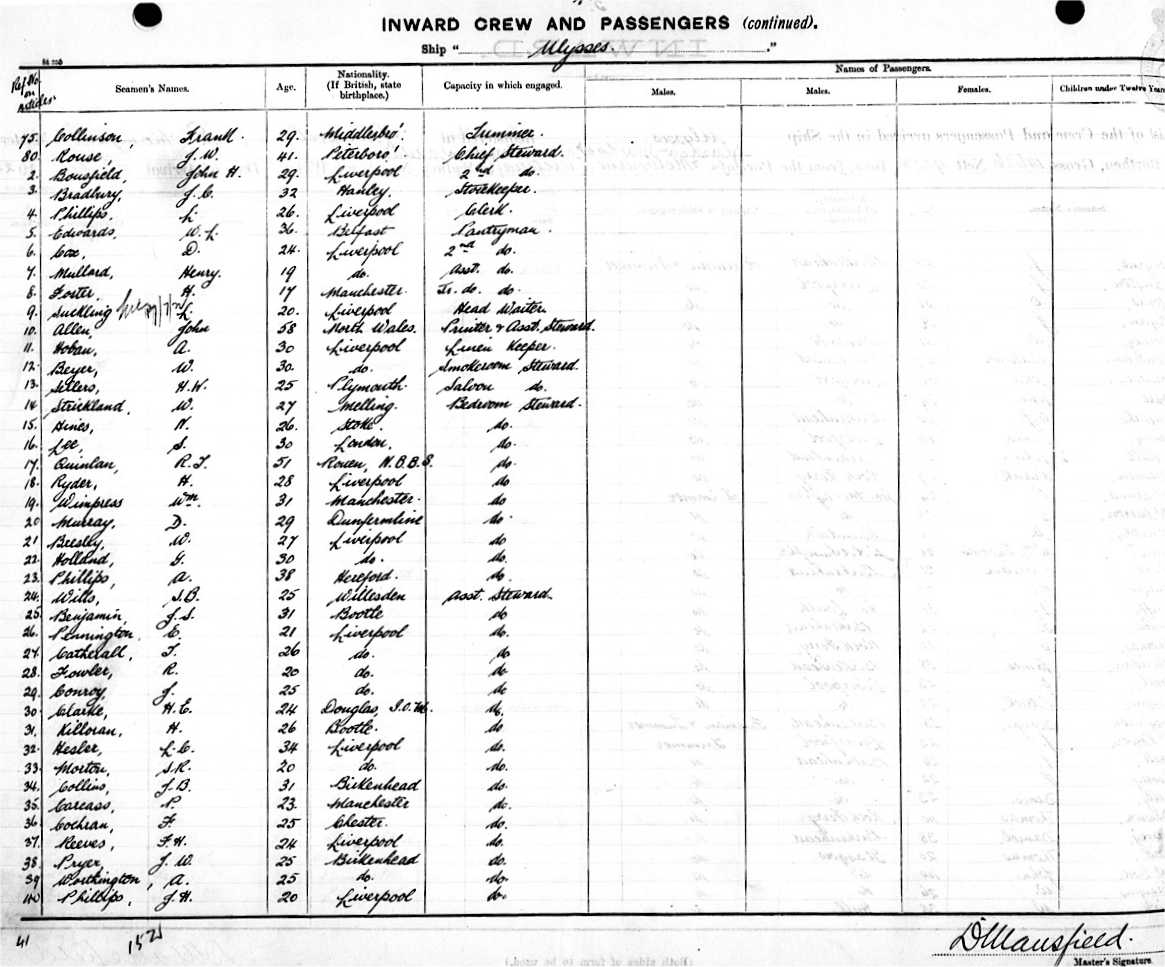 INWARD CREW AND PASSENGERS (continued).
Ship "Ulysses."
Ref. No. on Articles. Seamen's Names. Age. Nationality. (If British, state birthplace.) Capacity in which engaged. Names of Passengers.
Males. Males. Females. Children under Twelve Years
75. Collinson, Frank. 29. Middlesbro'. Trimmer.
80. Rouse, J. W. 41. Peterboro'. Chief Steward.
2. Bousfield, John H. 29. Liverpool 2nd do
3. Bradbury, J. C. 32 Hanley. Storekeeper.
4. Phillips, L. 26. Liverpool Clerk.
5. Edwards, W. L. 36. Belfast Pantryman.
6. Cox, D. 24. Liverpool 2nd do.
7. Mullard, Henry. 19 do. Asst. do.
8. Foster. H. 17 Manchester. Jr. do. do.
9. Suckling L. 20. Liverpool Head Waiter.
10. Allen, John 58 North Wales. Printer & Asst. Steward.
11. Hoban, A. 30 Liverpool Linen Keeper.
12. Beyer, W. 30. do. Smokeroom Steward.
13. Sellers, H. W. 25 Plymouth. Saloon do.
14 Strickland, W. 27 Melling. Bedroom Steward.
15. Hines, N. 26. Stoke. do.
16. Lee, S. 30 London. do.
17. Quinlan, R. T. 51 do.
18. Ryder, H. 28 Liverpool do
19. Wimpress Wm. 31 Manchester. do
20 Murray, D. 29 Dunfermline do.
21 Beesley, W. 27 Liverpool do
22. Holland, G. 30 do. do.
23. Phillips, A. 38 Hereford. do.
24. Wills, S. B. 25 Willesden Asst. Steward.
25. Benjamin, J. S. 31 Bootle do
26. Pennington. E. 21 Liverpool do.
27. Catherall, T. 26 do. do
28. Fowler, R. 20 do. do
29. Conroy, J. 25 do. do
30. Clarke, H. E. 24 Douglas, I.O.M. do.
31. Killoran, H. 26 Bootle. do
32. Hesler, L. C. 34 Liverpool do.
33. Morton, S. R. 20 do. do.
34. Collins, J. B. 31 Birkenhead do.
35. Carcass, P. 23. Manchester do.
36 Cochran, F 25 Chester. do.
37. Reeves, F. H. 24 Liverpool do.
38. Pryer, J. W. 25 Birkenhead do.
39 Worthington, A. 25 do. do.
40 Phillips, J. H. 20 Liverpool do.
41 1521
D. Mansfield.
Master's Signature.